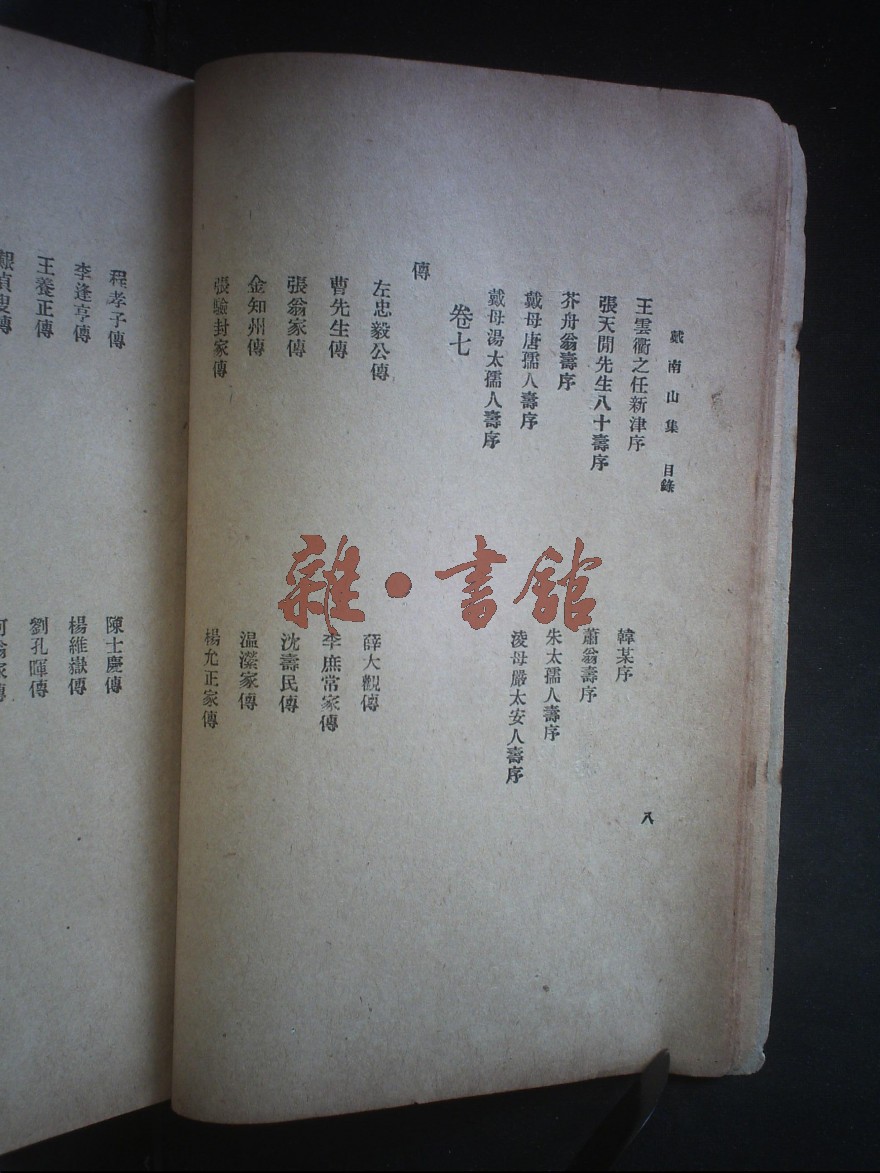 戴南山集 目錄
王雲衢之任新津序
韓某序
張天閒先生八十壽序
蕭翁壽序
芥舟翁壽序
朱太孺人壽序
戴母唐孺人壽序
淩母嚴太安人壽序
戴母湯太孺人壽序
卷七
傳
左忠毅公傳
薛大觀傳
曹先生傳
李庶常家傳
張翁家傳
沈壽民傳
金知州傳
温濚家傳
張驗封家傳
楊允正家傳
八
程孝子傳
陳士慶傳
李逢亨傳
楊維嶽傳
王養正傳
劉孔暉傳
雜·書館